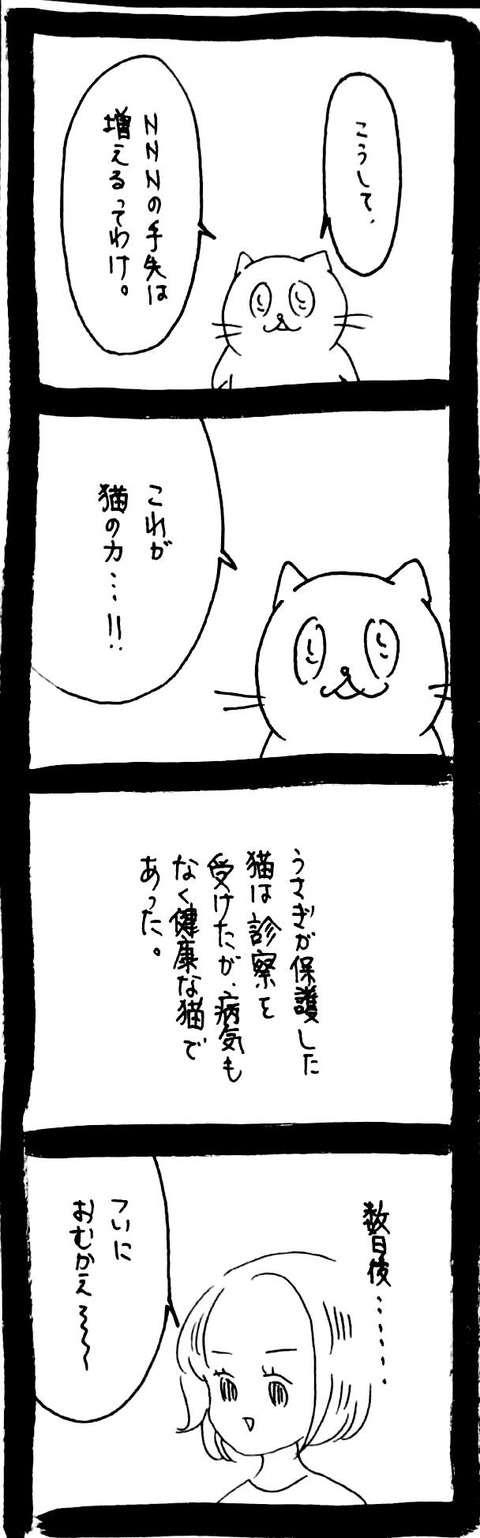 こうして、
NNNの手先は
増えるってわけ。
これが
猫の力…!!
うさぎが保護した
猫は診察を
受けたが、病気も
なく健康な猫で
あった。
数日後……
ついに
おむかえ〜〜